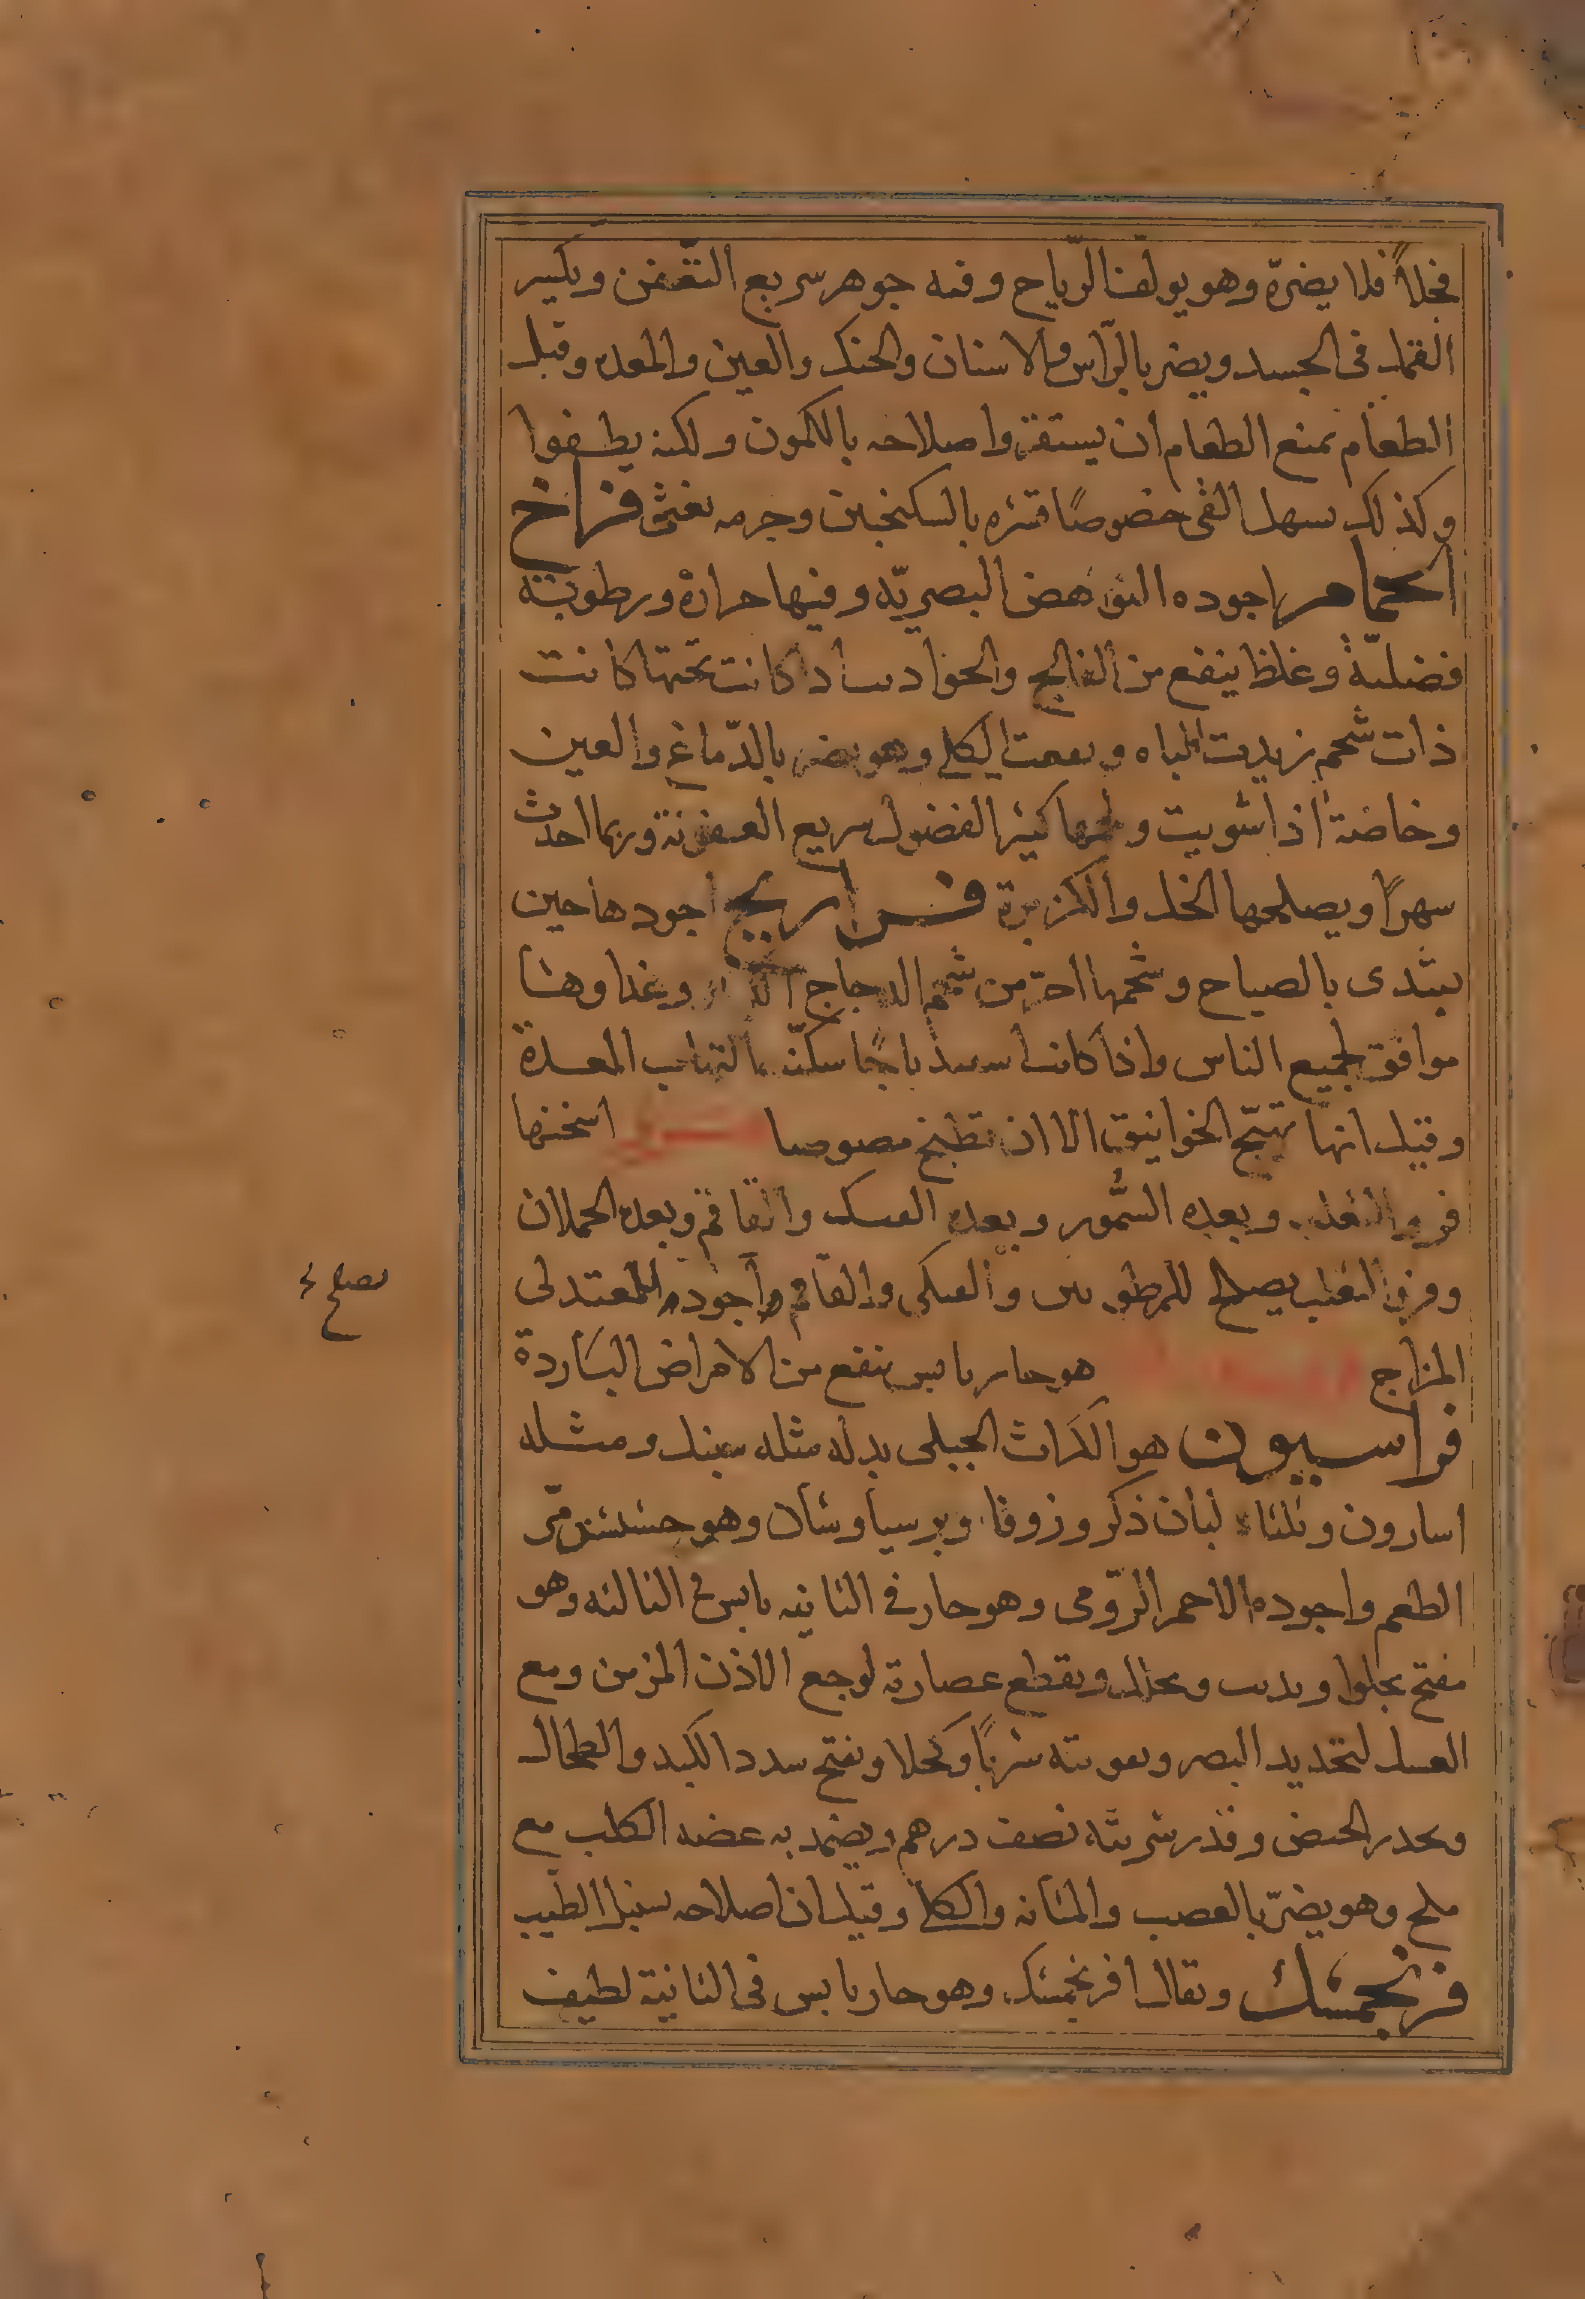 فجلاً فلا يضرّه وهو يولّف الرّياح وفيه جوهر سريع التعّفن ويكثر
القمل فى الجسد ويضر بالرّأس والاسنان والحنك والعين والمعده وقبل
الطعام يمنع الطعام ان يستقر واصلاحه بالكمون ولكنه يطفوا
وكذلك يسهل القى خصوصًا قشره بالسكنجبين وجرمه يغثى فراخ
الحمام اجوده النواهض البصريّه وفيها حرارة ورطوبة
فضليّة وغلظ ينفع من الفالج والخوادر كانت تحتها كانت
ذات شحم زيدت الباه الكلى وهو يضر بالدّماغ والعين
وخاصة اذا شويت ولحمها كثير الفضول سريع العفونة وربما احدث
سهرًا ويصلحها الخل والكزبرة فراريج اجودها حين
يبتدى بالصياح وشحمها احرّ من شحم الدجاج وغذاوها
موافق لجميع الناس واذا كانت سكّنت التهاب المعدة
وقيل انها تهيّج الخوانيق الا ان تطبخ مصوصا اسخنها
فرو الثعلب وبعده السّمور وبعده الفنك والقاقم وبعده الحملان
وفرو الثعلب يصلح للمرطوبين والفنكى والقاقم واجوده للمعتدلى
يصلح
المزاج هو حار يابس ينفع من الامراض الباردة
فراسيون هو الكراث الجبلى بدله مثله سنبل ومثله
اسارون وثلثاه لبان ذكر وزوفا وبرسياوشان وهو حشيش مرّ
الطعم واجوده الاحمر الرّومى وهو حار فى الثانيه يابس فى الثالثه وهو
مفتح يجلوا ويذيب ويحلل ويقطع عصارته لوجع الاذن المزمن ومع
العسل لتحديد البصر وتقويته شربًا وكحلا ويفتح سدد الكبد والطحال
ويحدر الحيض وقدر شربته نصف درهم ويضمد به عضه الكلب مع
ملح وهو يضرّ بالعصب والمثانه والكلى وقيل ان اصلاحه سنبل الطيب
فرنجمشك ويقال افرنجمشك وهو حار يابس فى الثانية لطيف